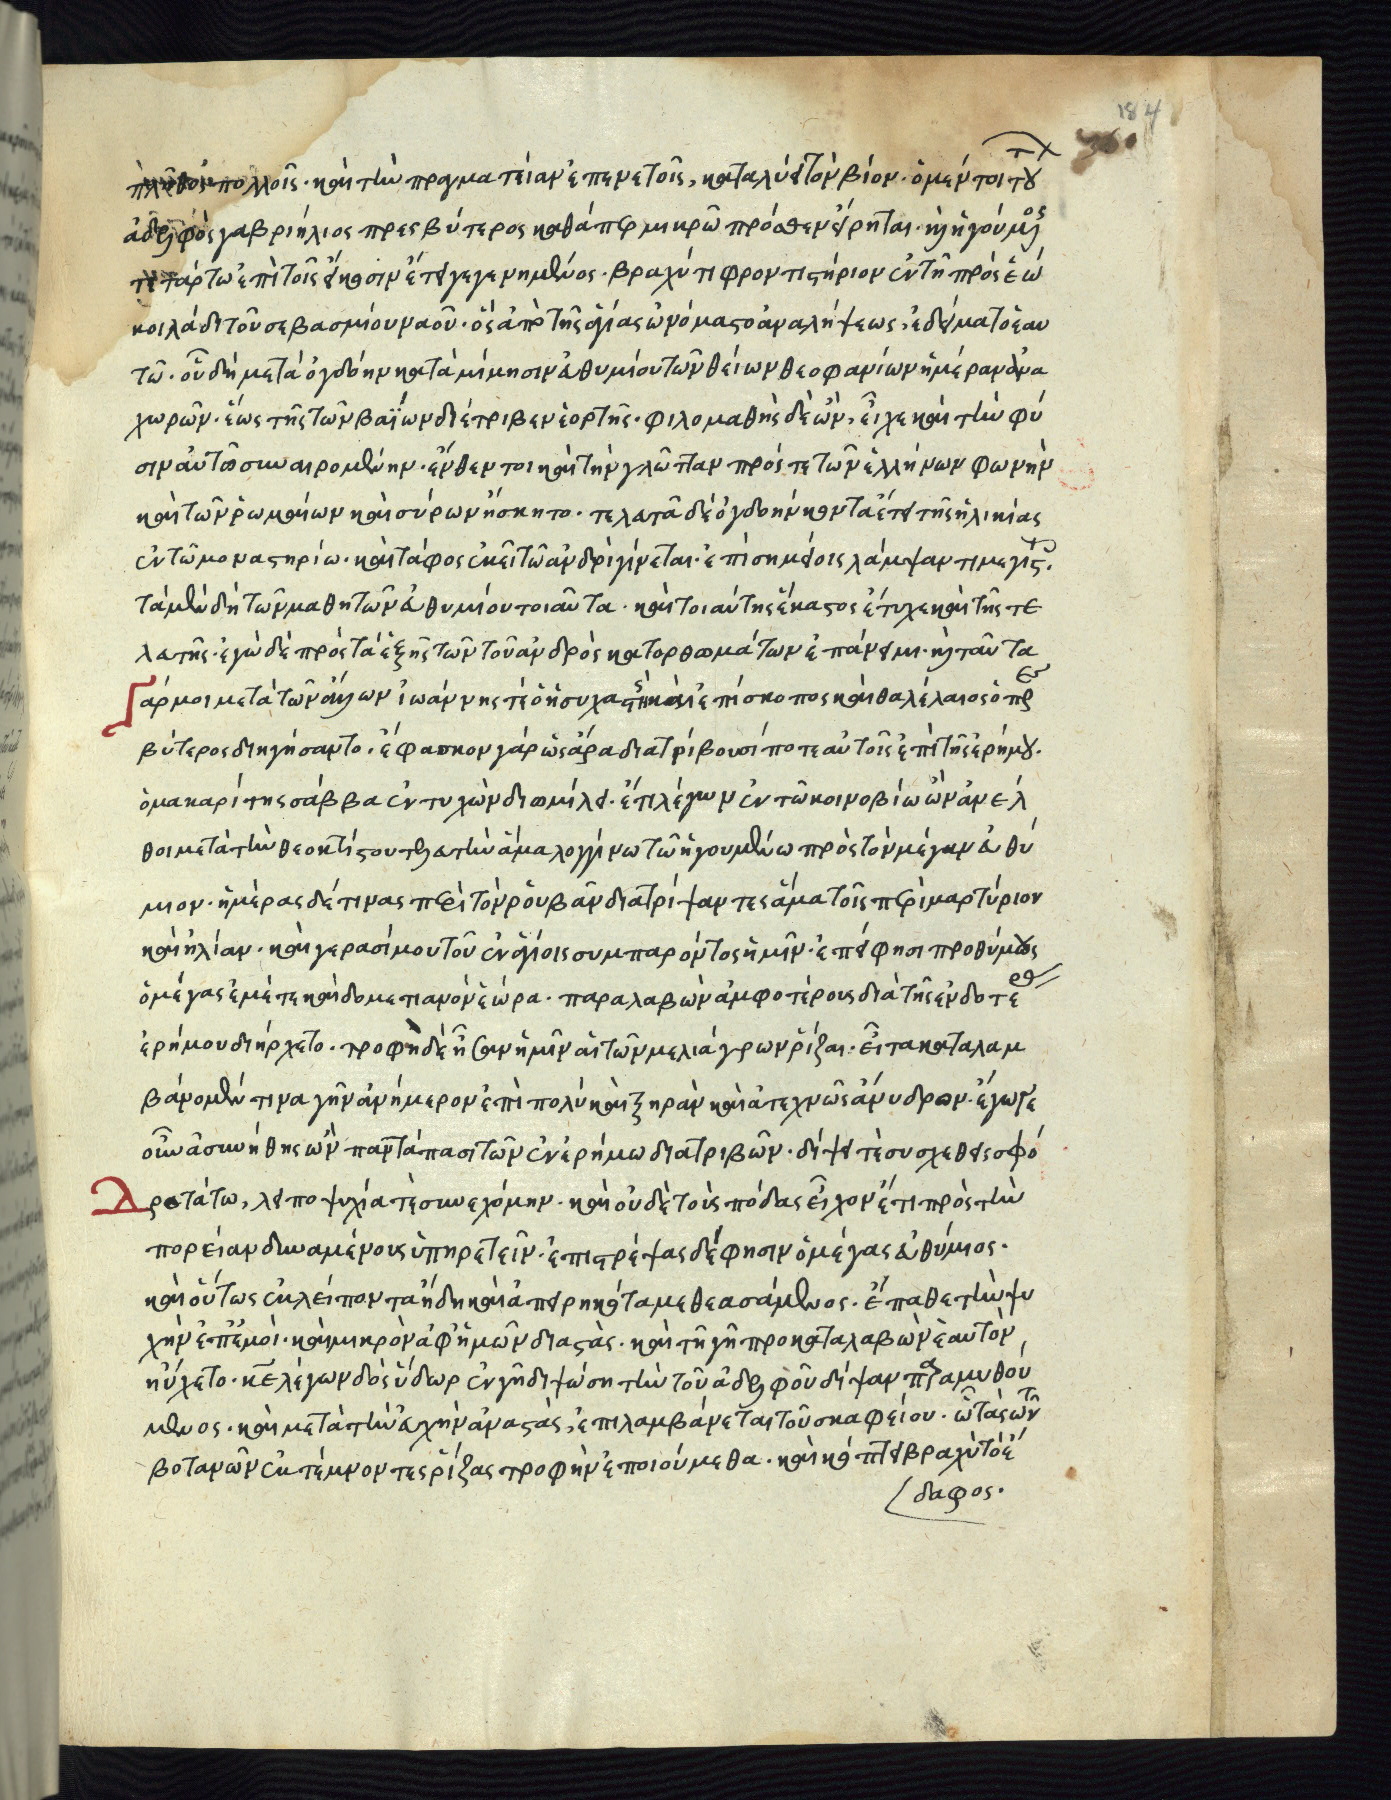 184
πλῆθος πολλοῖς· καὶ τὴν πραγματείαν ἐπενετοῖς, καταλύει τὸν βίον· ὁ μέντοι τού(τ)
ἀδελφὸς γαβριήλιος πρεσβύτερος καθάπερ μικρῶ πρόσθεν εἴρηται· καὶ ἡγούμενος
τετάρτω ἐπὶ τοῖς εἴκοσιν ἔτει γεγενημένος· βραχύ τι φροντιστήριον ἐν τῆ πρὸς ἕω
κοιλάδι τοῦ σεβασμίου ναοῦ· ὃς ἀπὸ τῆς ἁγίας ὠνόμαστο ἀναλήψεως, ἐδείματο ἑαυ
τῶ· οὗ δὴ μετὰ ὀγδόην κατὰ μίμησιν εὐθυμίου τῶν θείων θεοφανίων ἡμέραν ἀνα
χωρῶν· ἕως τῆς τῶν βαΐων διέτριβεν ἑορτῆς· φιλομαθὴς δὲ ὢν, εἶχε καὶ τὴν φύ
σιν αὐτῶ συναιρομένην· ἔνθεν τοι καὶ τὴν γλῶτταν πρός τε τῶν ἑλλήνων φωνὴν
καὶ τῶν ῥωμαίων καὶ σύρων ἤσκητο· τελευτᾶ δὲ ὀγδοήκοντα ἔτει τῆς ἡλικίας
ἐν τῶ μοναστηρίω· καὶ τάφος ἐκεῖ τῶ ἀνδρὶ γίνεται· ἐπὶ σημείοις λάμψαντι μεγίστ.
τὰ μὲν δὴ τῶν μαθητῶν εὐθυμίου τοιαῦτα· καὶ τοιαύτης ἕκαστος ἔτυχε καὶ τῆς τε
λευτῆς· ἐγὼ δὲ πρὸς τὰ ἑξῆς τῶν τοῦ ἀνδρὸς κατορθωμάτων ἐπάνειμι· καὶ ταῦτα
Γάρ μοι μετὰ τῶν ἄλλων ἰωάννης τὲ ὁ ἡσυχαστὴς καὶ ἐπίσκοπος καὶ θαλέλαιος ὁ πρεσ
βύτερος διηγήσαντο· ἔφασκον γὰρ ὡς ἄρα διατρίβουσί ποτε αὐτοῖς ἐπὶ τῆς ἐρήμου·
ὁ μακαρίτης σάββα ἐντυχὼν διωμίλει· ἔτι λέγων ἐν τῶ κοινοβίω ὢν ἀνέλ
θοι μετὰ τὴν θεοκτίστου τελευτὴν ἅμα λογγίνω τῶ ἡγουμένω πρὸς τὸν μέγαν εὐθύ
μιον· ἡμέρας δέ τινας περὶ τὸν ῥουβᾶν διατρίψαντες ἅμα τοῖς περὶ μαρτύριον
καὶ ἠλίαν· καὶ γερασίμου τοῦ ἐν ἁγίοις συμπαρόντος ἡμῖν· ἐπεί φησι προθύμους
ὁ μέγας ἐμέ τε καὶ δομετιανὸν ἑώρα· παραλαβὼν ἀμφοτέρους διὰ τῆς ἐνδοτέρ
ἐρήμου διήρχετο· τροφὴ δὲ ἦσαν ἡμῖν αἱ τῶν μελιάγρων ῥίζαι· εἶτα καταλαμ
βάνομέν τινα γῆν ἀνήμερον ἐπὶ πολὺ καὶ ξηρὰν καὶ ἀτεχνῶς ἄνυδρον· ἔγωγε
οὖν ἀσυνήθης ὢν παντάπασι τῶν ἐν ἐρήμω διατριβῶν· δίψει τὲ συσχεθεὶς σφο
Δροτάτω, λειποψυχία τὲ συνεχόμην· καὶ οὐδὲ τοὺς πόδας εἶχον ἔτι πρὸς τὴν
πορείαν δυναμένους ὑπηρετεῖν· ἐπιστρέψας δέ φησιν ὁ μέγας εὐθύμιος·
καὶ οὕτως ἐκλείποντα ἤδη καὶ ἀπειρηκότα με θεασάμενος· ἔπαθε τὴν ψυ
χὴν ἐπ' ἐμοί· καὶ μικρὸν ἀφ' ἡμῶν διαστὰς· καὶ τῆ γῆ προκαταλαβὼν ἑαυτὸν
ηὔχετο· κ(ύρι)ε λέγων δὸς ὕδωρ ἐν γῆ διψώση τὴν τοῦ ἀδελφοῦ δίψαν παραμυθού
μενος· καὶ μετὰ τὴν εὐχὴν ἀναστὰς, ἐπιλαμβάνεται τοῦ σκαφείου· ὧ τὰς τῶν
βοτανῶν ἐκτέμνοντες ῥίζας τροφὴν ἐποιούμεθα· καὶ κόπτει βραχὺ τὸ ἔ
δαφος·